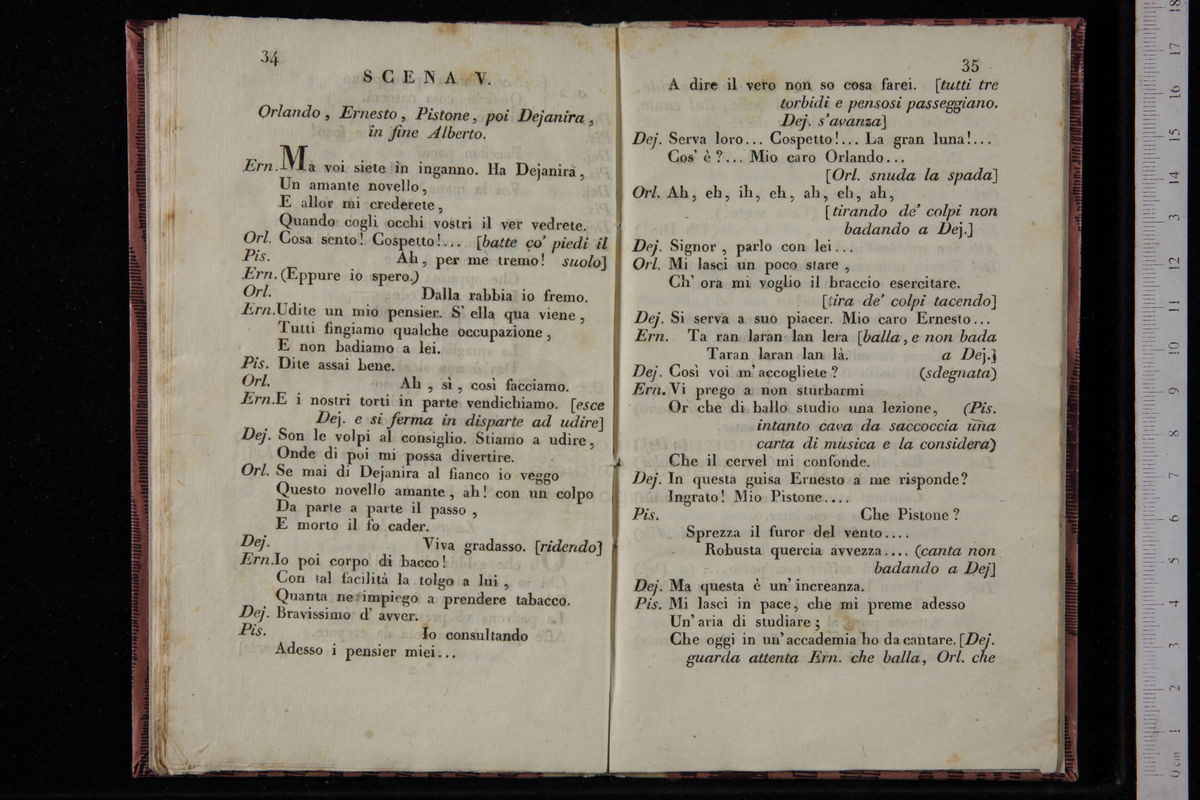 34
SCENA V.
Orlando, Ernesto, Pistone, poi Dejanira,
in fine Alberto.
Ern. Ma voi siete in inganno. Ha Dejanira,
Un amante novello,
E allor mi crederete,
Quando cogli occhi vostri il ver vedrete.
Orl. Cosa sento! Cospetto!... [batte co' piedi il
Pis. Ah, per me tremo! suolo]
Ern. (Eppure io spero.)
Orl. Dalla rabbia io fremo.
Ern. Udite un mio pensier. S' ella qua viene,
Tutti fingiamo qualche occupazione,
E non badiamo a lei.
Pis. Dite assai bene.
Orl. Ah, sì, così facciamo.
Ern. E i nostri torti in parte vendichiamo. [esce
Dej. e si ferma in disparte ad udire]
Dej. Son le volpi al consiglio. Stiamo a udire,
Onde di poi mi possa divertire.
Orl. Se mai di Dejanira al fianco io veggo
Questo novello amante, ah! con un colpo
Da parte a parte il passo,
E morto il fo cader.
Dej. Viva gradasso. [ridendo]
Ern. Io poi corpo di bacco!
Con tal facilità la tolgo a lui,
Quanta ne impiego a prendere tabacco.
Dej. Bravissimo d' avver.
Pis. Io consultando
Adesso i pensier miei...
35
A dire il vero non so cosa farei. [tutti tre
torbidi e pensosi passeggiano.
Dej. s'avanza]
Dej. Serva loro... Cospetto!... La gran luna!...
Cos' è?... Mio caro Orlando...
[Orl. snuda la spada]
Orl. Ah, eh, ih, eh, ah, eh, ah,
[tirando de' colpi non
badando a Dej.]
Dej. Signor, parlo con lei...
Orl. Mi lasci un poco stare,
Ch' ora mi voglio il braccio esercitare.
[tira de' colpi tacendo]
Dej. Si serva a suo piacer. Mio caro Ernesto...
Ern. Ta ran laran lan lera [balla, e non bada
Taran laran lan là. a Dej.]
Dej. Così voi m' accogliete? (sdegnata)
Ern. Vi prego a non sturbarmi
Or che di ballo studio una lezione, (Pis.
intanto cava da saccoccia una
carta di musica e la considera)
Che il cervel mi confonde.
Dej. In questa guisa Ernesto a me risponde?
Ingrato! Mio Pistone....
Pis. Che Pistone?
Sprezza il furor del vento....
Robusta quercia avvezza.... (canta non
badando a Dej]
Dej. Ma questa è un' increanza.
Pis. Mi lasci in pace, che mi preme adesso
Un' aria di studiare;
Che oggi in un' accademia ho da cantare. [Dej.
guarda attenta Ern. che balla, Orl. che
0 cm 1 2 3 4 5 6 7 8 9 10 11 12 13 14 15 16 17 18